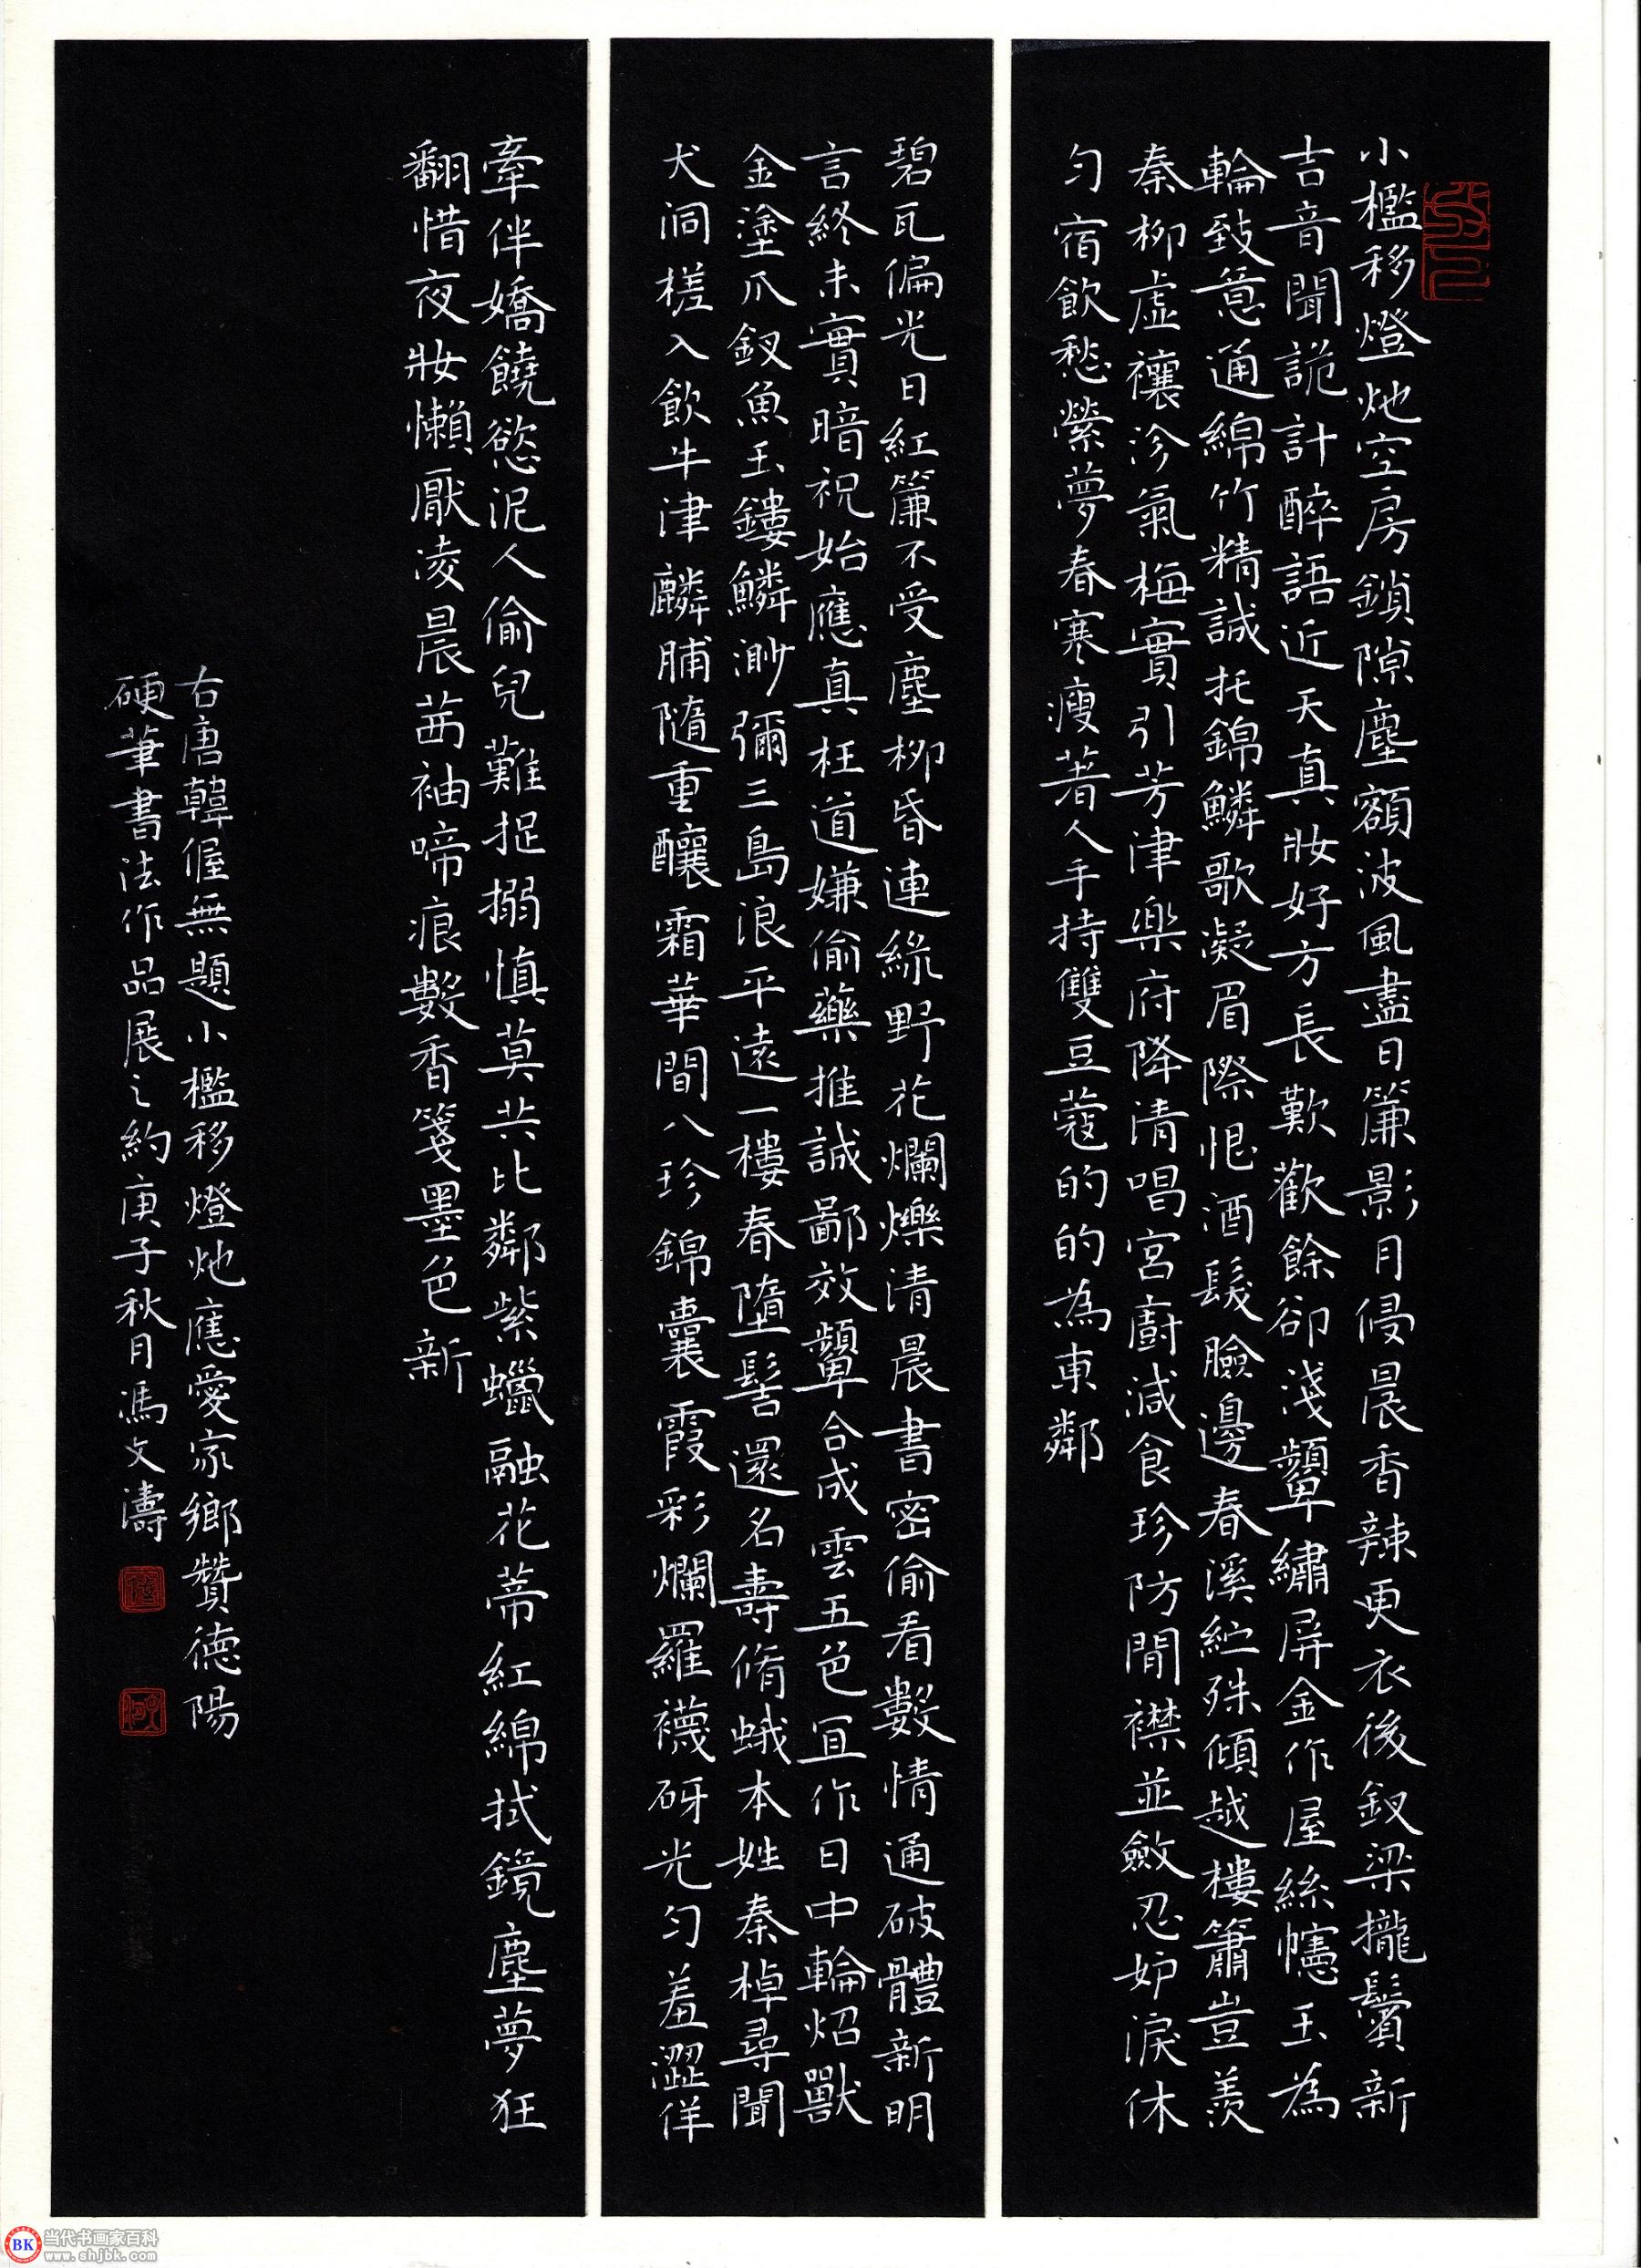 小檻移燈灺空房鎖隙塵額波風盡日簾影月侵晨香辣更衣後釵梁攏鬢新
吉音聞詭計醉語近天真妝好方長歎歡餘卻淺顰繡屏金作屋絲幰玉為
輪致意通綿竹精誠托錦鱗歌凝眉際恨酒髮臉邊春溪紵殊傾越樓簫豈羨
秦柳虛禳沴氣梅實引芳津樂府降清唱宮廚減食珍防閒襟並斂忍妒淚休
勻宿飲愁縈夢春寒瘦著人手持雙豆蔻的的為東鄰
碧瓦偏光日紅簾不受塵柳昏連綠野花爛爍清晨書密偷看數情通破體新明
言終未實暗祝始應真枉道嫌偷藥推誠鄙效顰合成雲五色宜作日中輪炤獸
金塗爪釵魚玉鏤鱗渺彌三島浪平遠一樓春墮髻還名壽脩蛾本姓秦棹尋聞
犬洞槎入飲牛津麟脯隨重釀霜華間八珍錦囊霞彩爛羅襪砑光勻羞澀佯
牽伴嬌饒慾泥人偷兒難捉搦慎莫共比鄰紫蠟融花蒂紅綿拭鏡塵夢狂
翻惜夜妝懶厭凌晨茜袖啼痕數香箋墨色新
右唐韓偓無題小檻移燈灺應愛家鄉贊德陽
硬筆書法作品展之約庚子秋月馮文濤
BK
当代书画家百科
www.shjbk.com